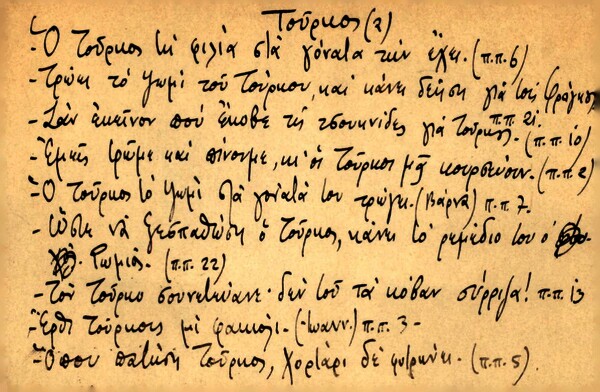 Τοῦρκος (2)
- Ὁ Τοῦρκος τὴ φιλία στὰ γόνατα τὴν ἔχει. (π.π. 6)
- Τρώει τὸ ψωμὶ τοῦ Τούρκου, καὶ κάνει δέηση γιὰ τοὺς Φράγκους
π.π. 21.
- Σὰν ἐκεῖνον ποὺ ἔκοβε τὶς τσουκνίδες γιὰ Τούρκους. (π.π. 10)
- Ἐμεῖς τρῶμε καὶ πίνουμε, κι' οἱ Τοῦρκοι μᾶς κουρσεύουν. (π.π. 2)
- Ὁ Τοῦρκος τὸ ψωμὶ στὰ γόνατά του τρώγει. (Βάρνα) π.π. 7.
- Ὥστε νὰ ξεσπαθώση ὁ Τοῦρκος, κάνει τὸ ρεμέδιο του ὁ
Ρωμιός. (π.π. 22)
- Τὸν Τοῦρκο σουνετεύανε· δὲν τοῦ τὰ κόβαν σύρριζα! π.π. 13
- Ἔρθε Τοῦρκος μὲ φακιόλι. (Ἰωανν.) π.π. 3 -
- Ὅπου πατήση Τοῦρκος, χορτάρι δὲ φυτρώνει. (π.π. 5).